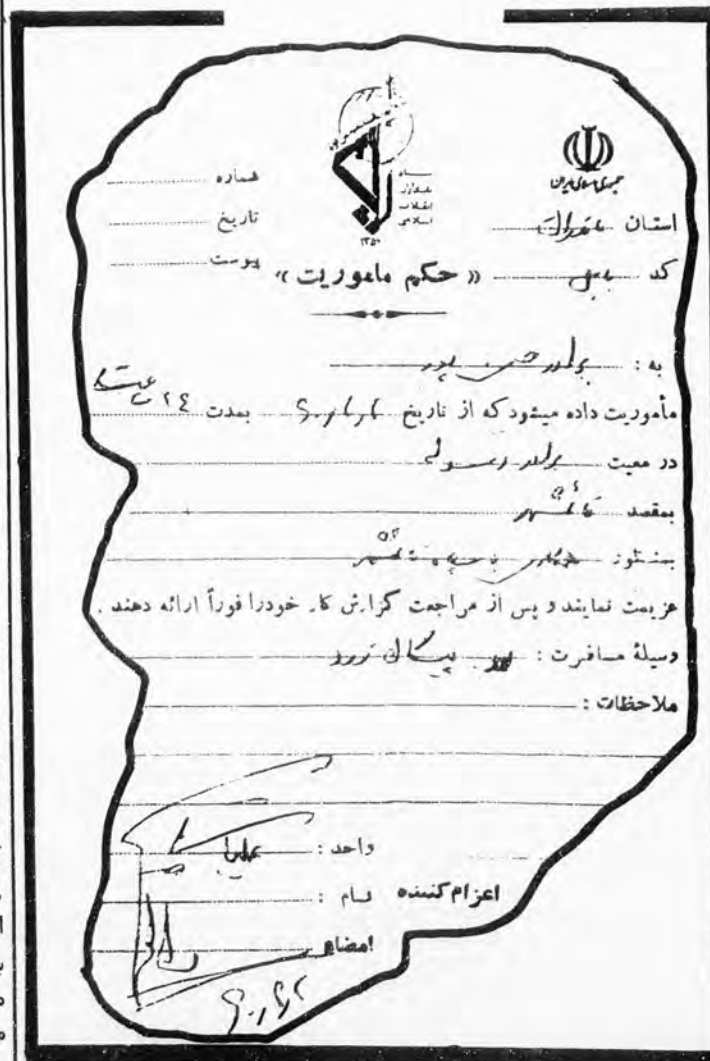 جمهوری اسلامی ایران
سپاه
پاسداران
انقلاب
اسلامی
۱۳۵۰
شماره
تاریخ
پیوست
استان مازندران
کد
« حکم ماموریت »
به : برادر حسن پور
مأموریت داده میشود که از تاریخ بمدت ۲٤ ساعت
در معیت برادر رسولی
بمقصد قائمشهر
بمنظور همکاری با سپاه قائمشهر
عزیمت نمایند و پس از مراجعت گزارش کار خودرا فوراً ارائه دهند .
وسیلهٔ مسافرت : پیکان زرد
ملاحظات :
واحد : عملیات
اعزام کننده نام :
امضاء